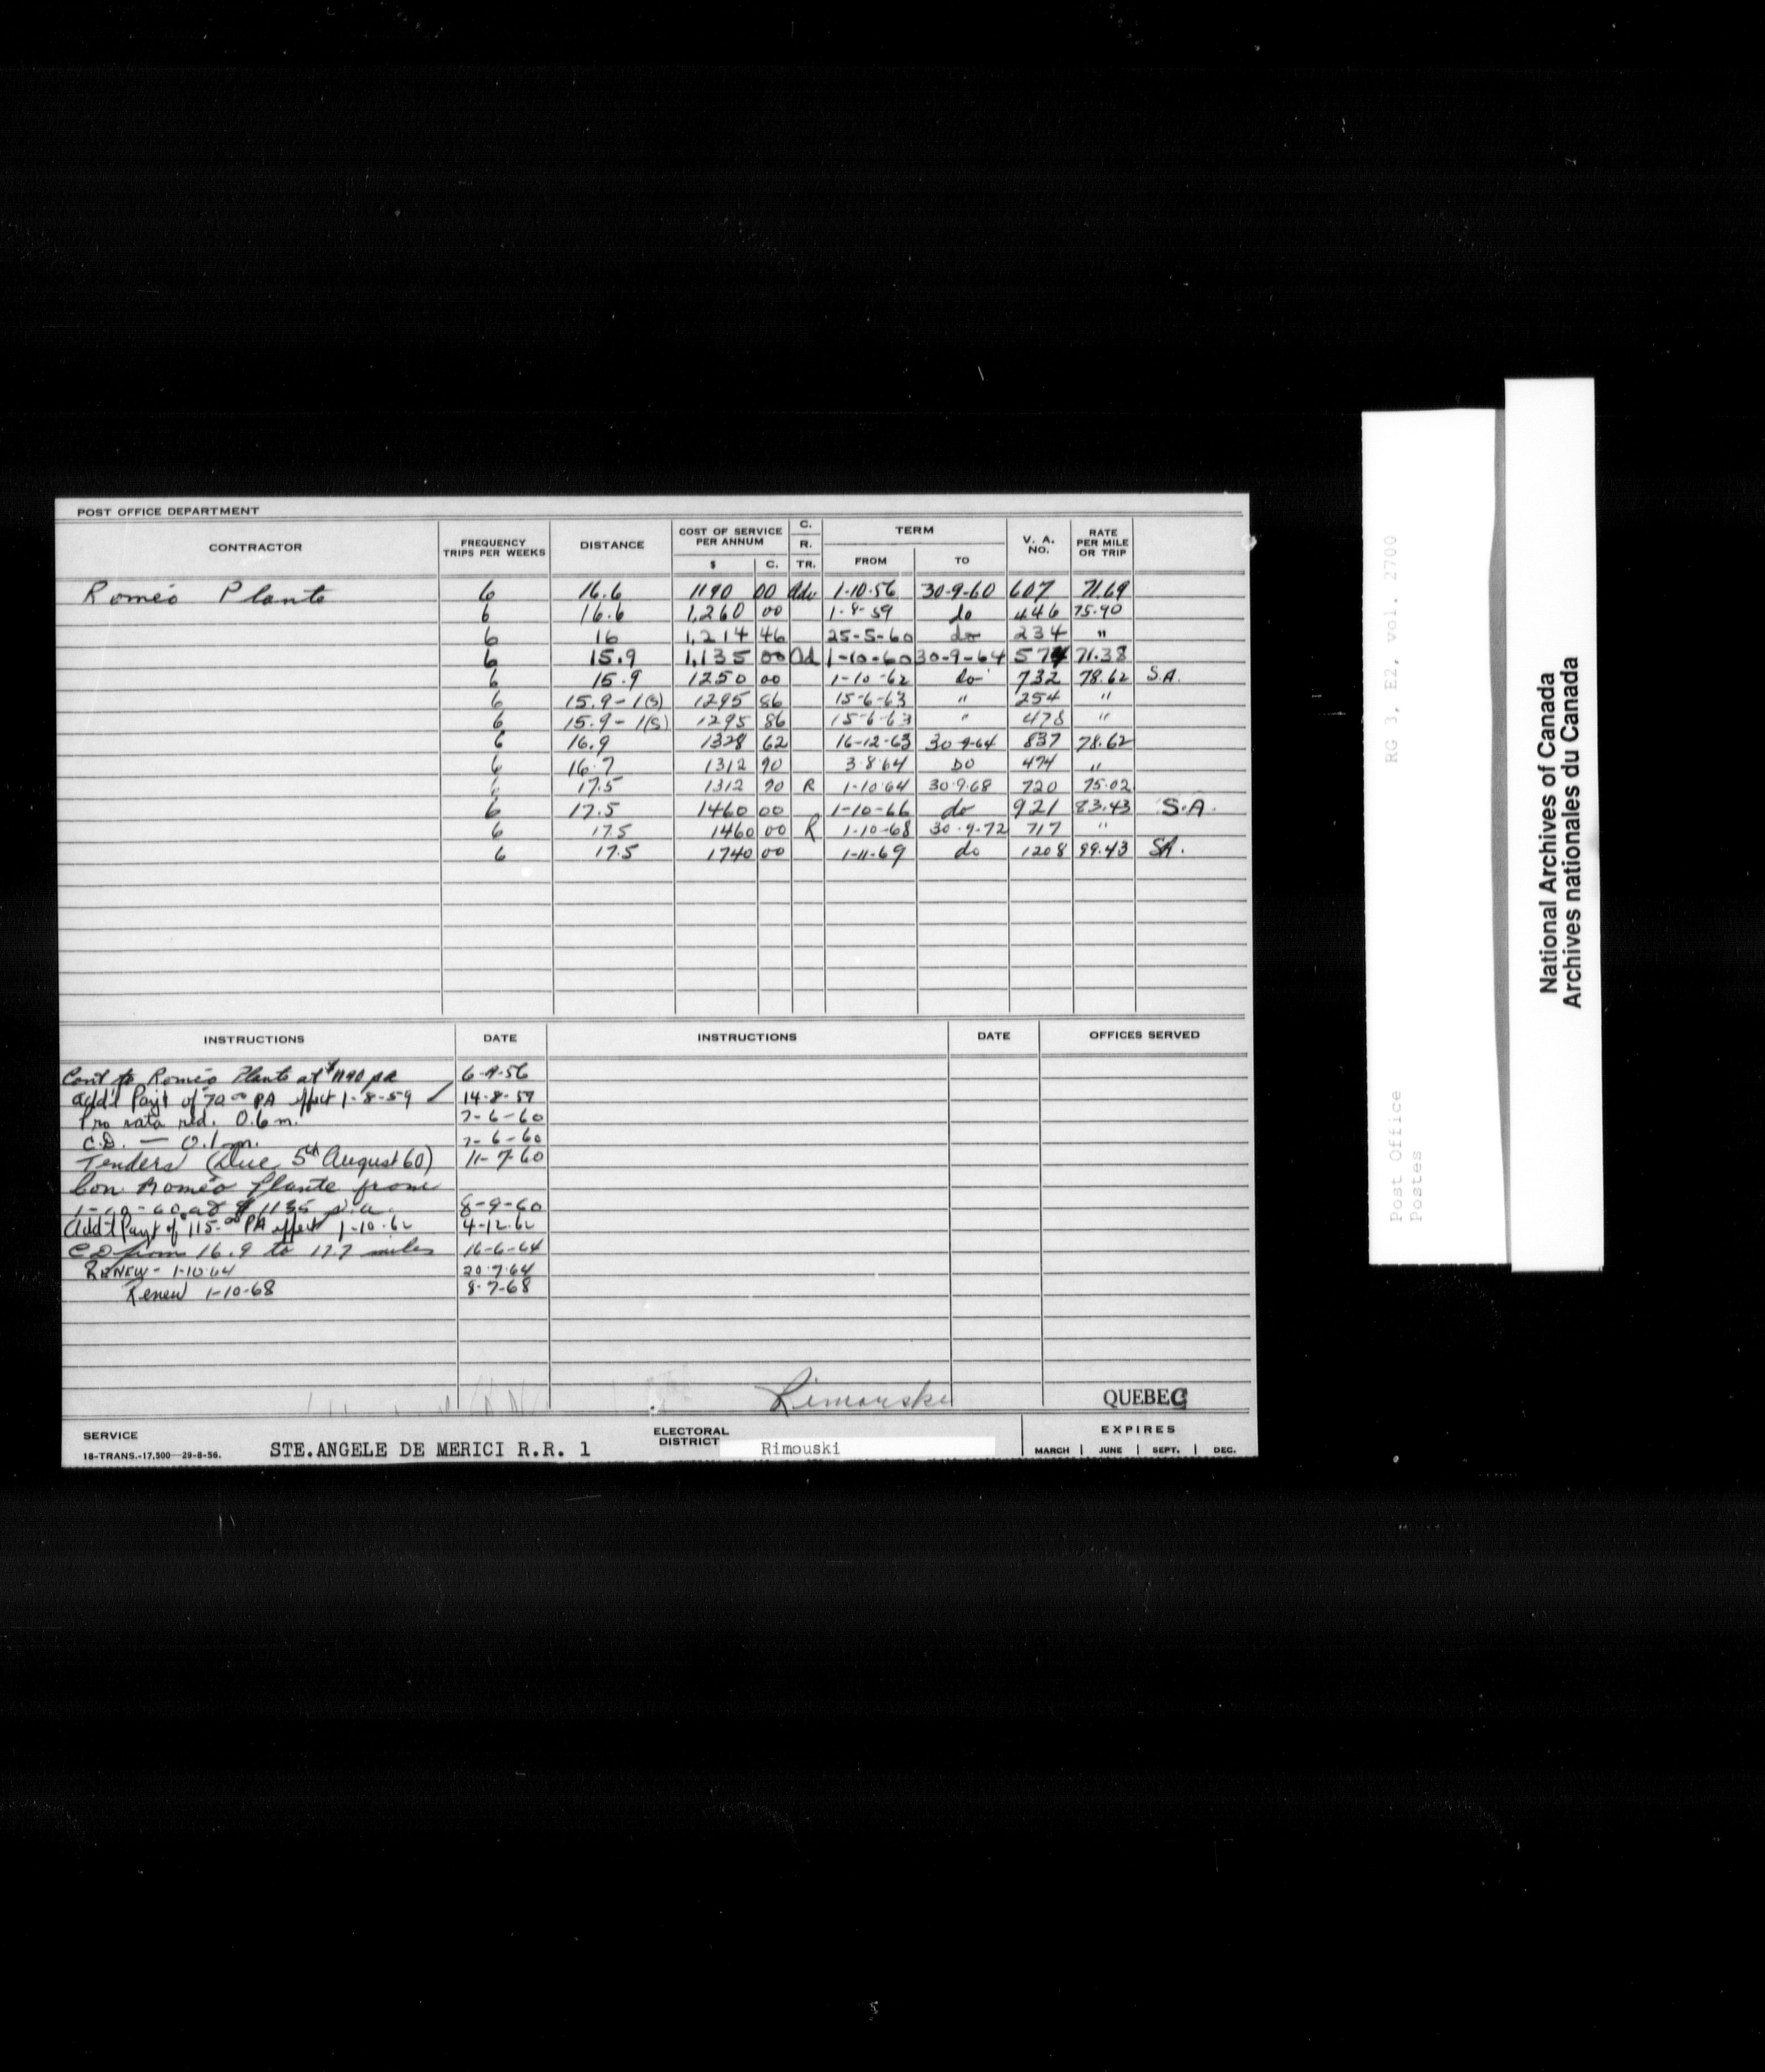 POST OFFICE DEPARTMENT
CONTRACTOR FREQUENCY TRIPS PER WEEKS DISTANCE COST OF SERVICE PER ANNUM $ C. C. R. TR. TERM FROM TO V. A. NO. RATE PER MILE OR TRIP
Roméo Plante 6 16.6 1190 00 Adv 1-10-56 30-9-60 607 71.69
6 16.6 1,260 00 1-8-59 do 446 75.90
6 16 1,214 46 25-5-60 do 234 "
6 15.9 1,135 00 Ad 1-10-60 30-9-64 574 71.38
6 15.9 1250 00 1-10-62 do 732 78.62 S.A.
6 15.9-1(S) 1295 86 15-6-63 " 254 "
6 15.9-1(S) 1295 86 15-6-63 " 478 "
6 16.9 1328 62 16-12-63 30-9-64 837 78.62
6 16.7 1312 90 3-8-64 DO 474 "
6 17.5 1312 90 R 1-10-64 30-9-68 720 75.02
6 17.5 1460 00 1-10-66 do 921 83.43 S.A.
6 17.5 1460 00 R 1-10-68 30-9-72 717 "
6 17.5 1740 00 1-11-69 do 1208 99.43 SA.
INSTRUCTIONS DATE INSTRUCTIONS DATE OFFICES SERVED
Cont to Roméo Plante at $1190 pa 6-9-56
Add'l Payt of 70.00 PA effect 1-8-59 14-8-59
Pro rata red. 0.6 m. 7-6-60
C.D. — 0.1 m. 7-6-60
Tenders (Due 5th August 60) 11-7-60
Con. Roméo Plante from
1-10-60 at $1135 p.a. 8-9-60
Add'l Payt of 115.00 PA effect 1-10-62 4-12-62
C D from 16.9 to 17.7 miles 16-6-64
RENEW - 1-10-64 20-7-64
Renew 1-10-68 8-7-68
Rimouski
QUEBEC
SERVICE
18-TRANS.-17,500—29-8-56.
STE.ANGELE DE MERICI R.R. 1
ELECTORAL DISTRICT Rimouski
EXPIRES
MARCH JUNE SEPT. DEC.
RG 3, E2, vol. 2700
Post Office
Postes
National Archives of Canada
Archives nationales du Canada